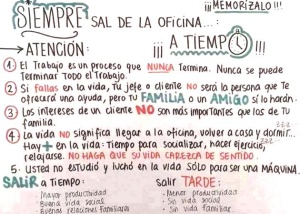 ¡¡ MEMORÍZALO !!
SIEMPRE SAL DE LA OFICINA...:
→ ATENCIÓN: ¡¡¡ A TIEMPO !!!
① El Trabajo es un proceso que NUNCA Termina. Nunca se puede
Terminar TODO el Trabajo.
② Si fallas en la vida, Tu jefe o cliente NO será la persona que Te
ofrecerá una ayuda, pero tu FAMILIA o un AMIGO sí lo harán.
③ Los intereses de un cliente NO son más importantes que los de Tu
familia.
④ La vida NO significa llegar a la oficina, volver a casa y dormir...
Hay + en la vida: Tiempo para socializar, hacer ejercicio,
relajarse. NO HAGA QUE SU VIDA CAREZCA DE SENTIDO.
5. Usted no estudió y luchó en la vida SÓLO para ser una MÁQUINA.
SALIR a Tiempo: salir TARDE:
- Mayor productividad - Menor productividad
- Buena vida social - Sin vida social
- Buenas relaciones familiares - Sin vida familiar.